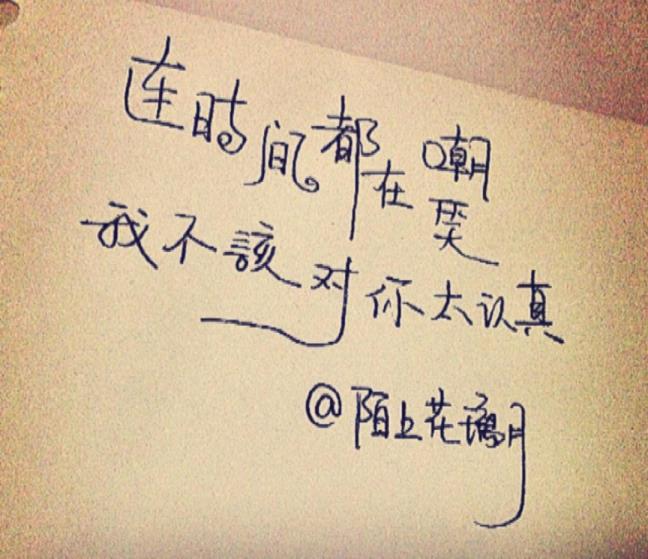 连時间都在嘲笑
我不該对你太认真
@陌上花璃月